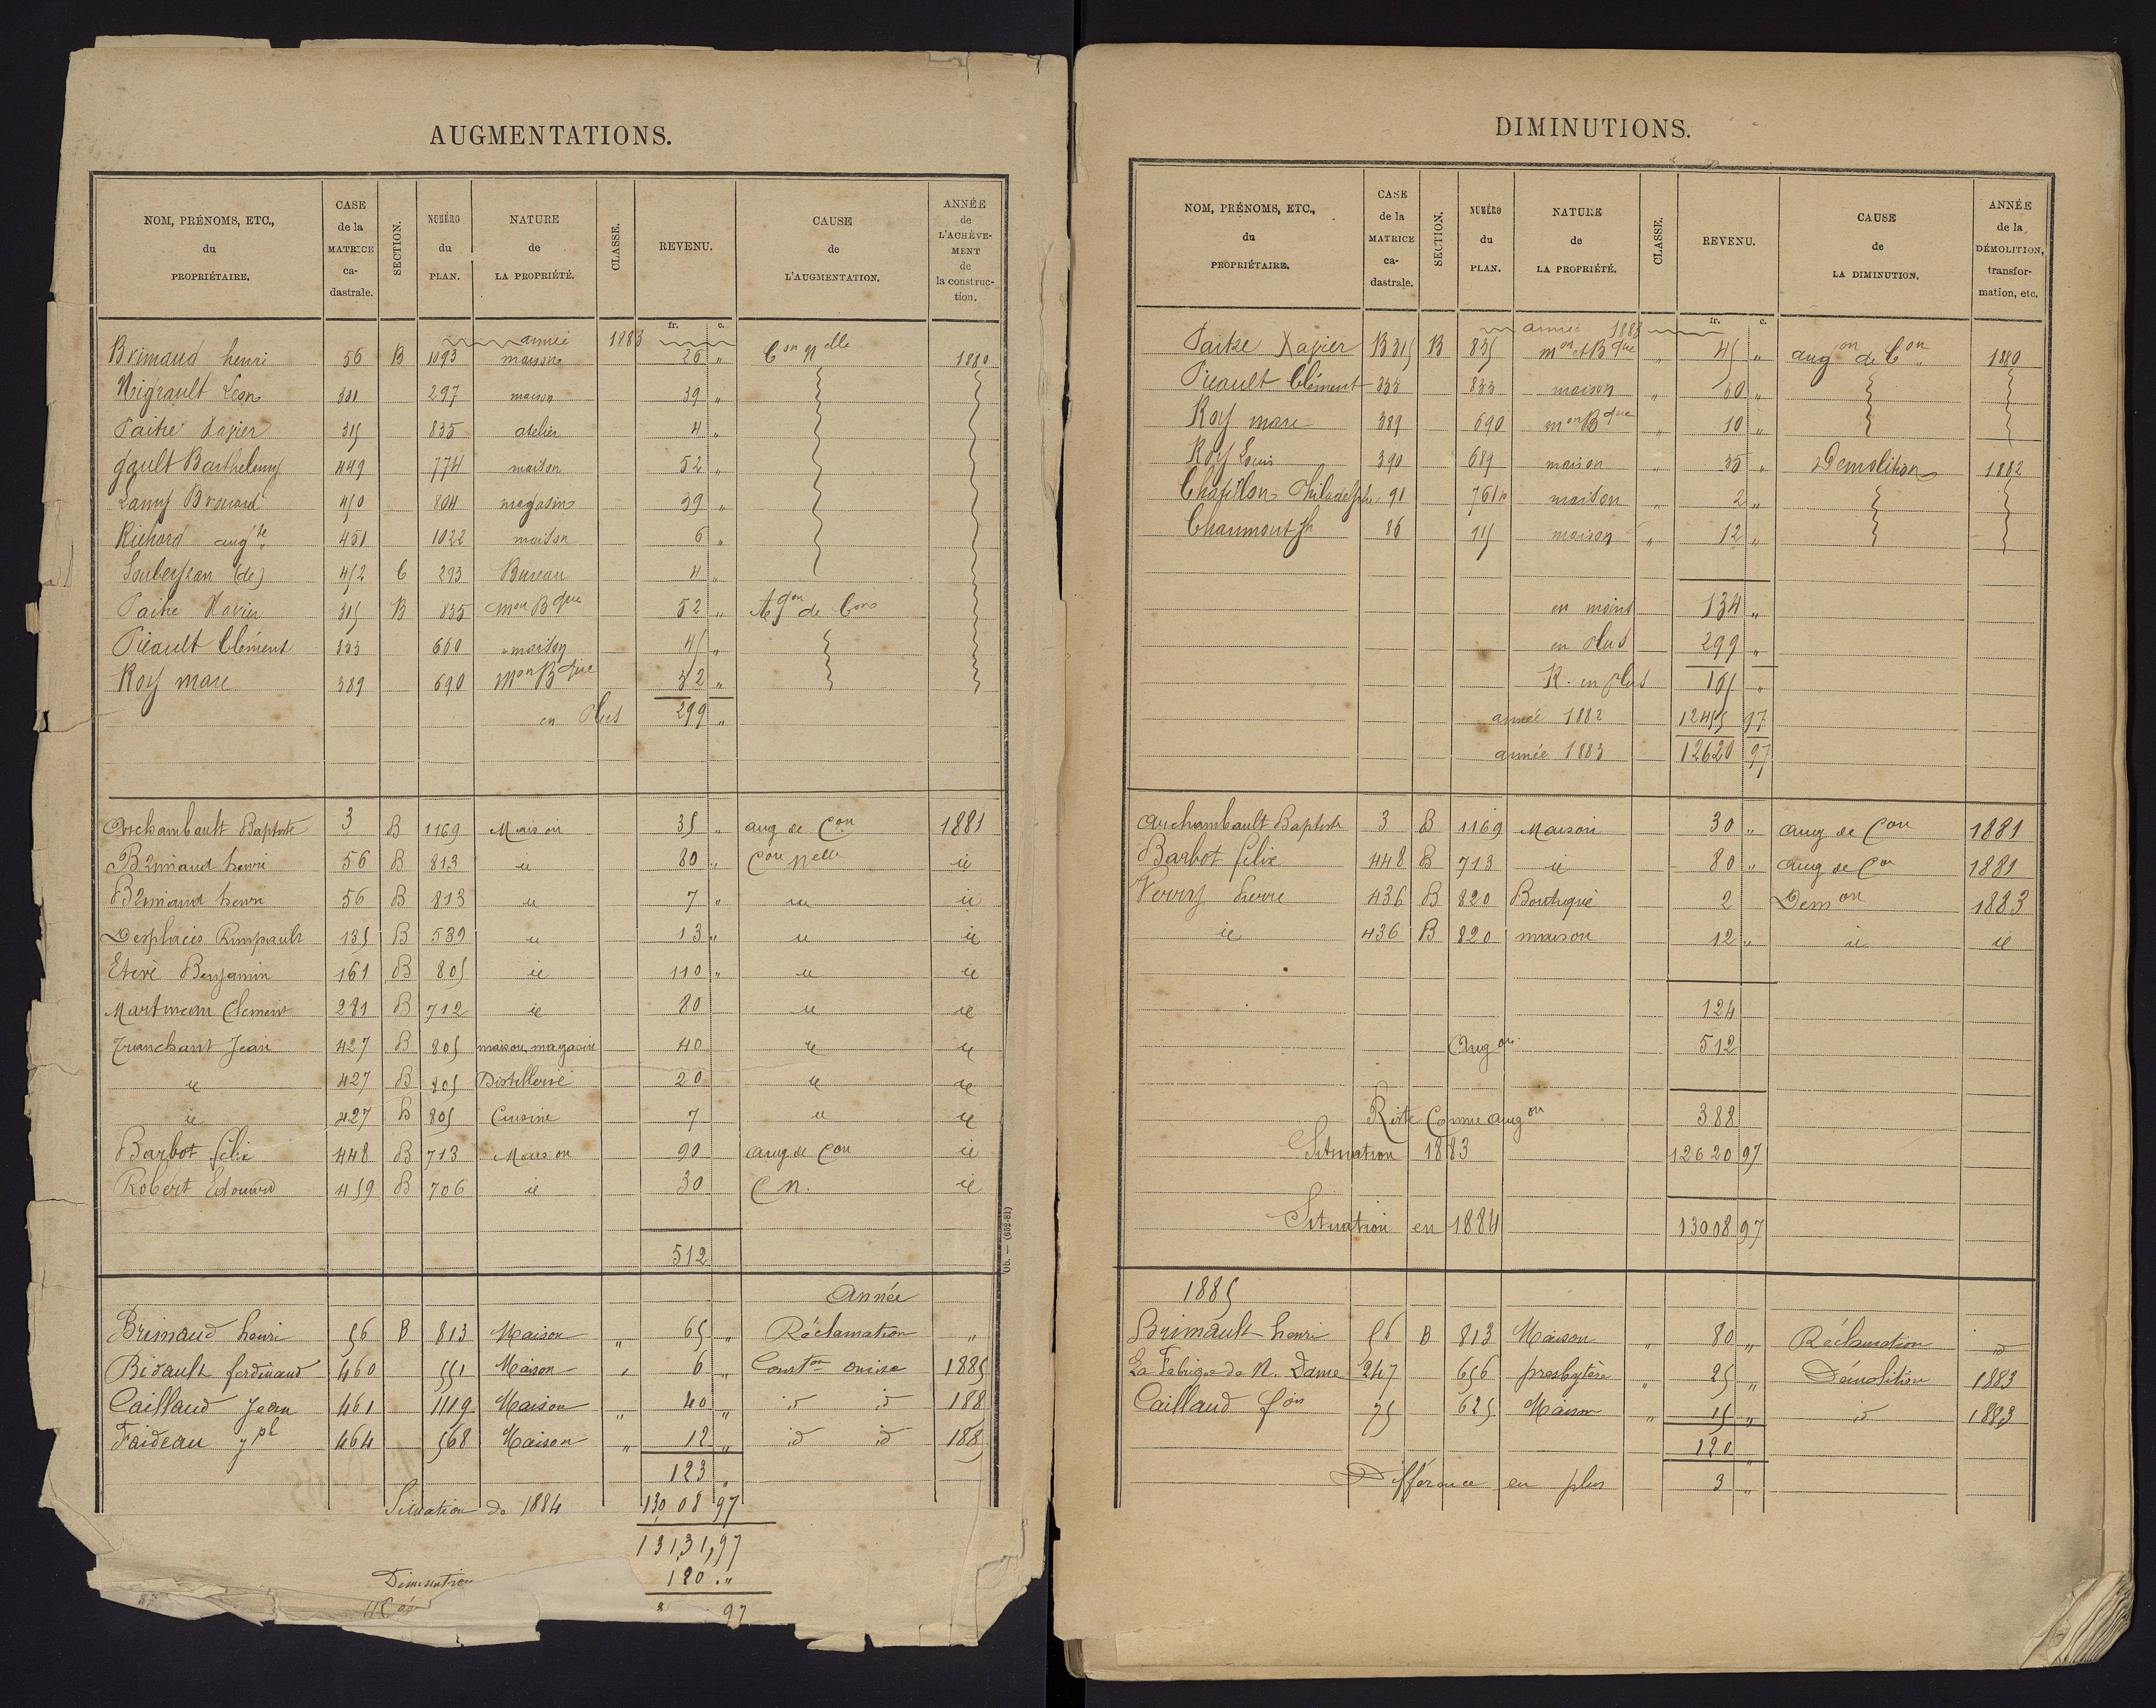 AUGMENTATIONS.
NOM, PRÉNOMS, ETC., du PROPRIÉTAIRE. CASE de la MATRICE ca-dastrale. SECTION. NUMÉRO du PLAN. NATURE de LA PROPRIÉTÉ. CLASSE. REVENU. CAUSE de L'AUGMENTATION. ANNÉE de L'ACHÈVE-MENT de la construc-tion.
fr. c.
année 1883
Brimaud henri 56 B 1093 maison 26 " Con Nelle 1880
Migrault Leon 301 297 maison 39 "
Paitre Xavier 315 835 atelier 4 "
gault Barthelemy 449 774 maison 52 "
Lamy Brouard 450 804 magasins 39 "
Richard augte 451 1022 maison 6 "
Soubeyran (de) 452 C 293 Bureau 4 "
Paitre Xavier 315 B 835 mon Bque 52 " Agon de Con
Picault Clément 333 600 maison 45 "
Roy marc 389 690 Mon Bque 32 "
en Plus 299 "
Archambault Baptiste 3 B 1169 Maison 35 " aug de Con 1881
Brimaud henri 56 B 813 id 80 " Con Nelle id
Brimaud henri 56 B 813 id 7 " id id
Desplacis Rimpault 135 B 539 id 13 " id id
Etevé Benjamin 161 B 805 id 110 " id id
Martineau Clement 281 B 712 id 80 id id
Tranchant Jean 427 B 805 maison, magasin 40 id id
id 427 B 805 Distillerie 20 id id
id 427 B 805 Cuisine 7 id id
Barbot félix 448 B 713 Maison 90 aug de Con id
Robert Edouard 459 B 706 id 30 C N. id
512
Année
Brimaud henri 56 B 813 Maison " 65 " Réclamation "
Bidault ferdinand 460 551 Maison " 6 " Conston omise 1885
Caillaud Jean 461 1119 Maison " 40 " id id 188
Faideau jph 464 568 Maison " 12 " id id 188
123 "
Situation de 1884 130,08 97
13131,97
Diminution 120 . "
97
Ob. — (652-81)
DIMINUTIONS.
NOM, PRÉNOMS, ETC., du PROPRIÉTAIRE. CASE de la MATRICE ca-dastrale. SECTION. NUMÉRO du PLAN. NATURE de LA PROPRIÉTÉ. CLASSE. REVENU. CAUSE de LA DIMINUTION. ANNÉE de la DÉMOLITION, transfor-mation, etc.
fr. c.
année 1883
Paitre Xavier B 315 B 835 mon et Bque " 45 " augon de Con 1880
Picault Clément 333 833 maison " 30 "
Roy marc 389 690 mon Bque " 10 "
Roy Louis 390 689 maison " 35 " Demolition 1882
Chapillon Philadelphe 91 761 p maison " 2 "
Chaumont Jh 86 915 maison " 12 "
en moins 134 "
en Plus 299 "
R. en plus 165 "
année 1882 12455 97
année 1883 12620 97
archambault Baptiste 3 B 1169 Maison 30 " aug de Con 1881
Barbot félix 448 B 713 id 80 " aug de Con 1881
Verry Pierre 436 B 820 Boutique 2 Demon 1883
id 436 B 820 maison 12 " id id
124
Augon 512
Reste Comme augon 388
Situation 1883 12620 97
Situation en 1884 13008 97
1885
Brimault henri 56 B 813 Maison " 80 " Réclamation id
La Fabrique de N. Dame 247 656 presbytère " 25 " Démolition 1883
Caillaud fois 75 625 Maison " 15 " id 1883
120 "
Différence en plus 3 "